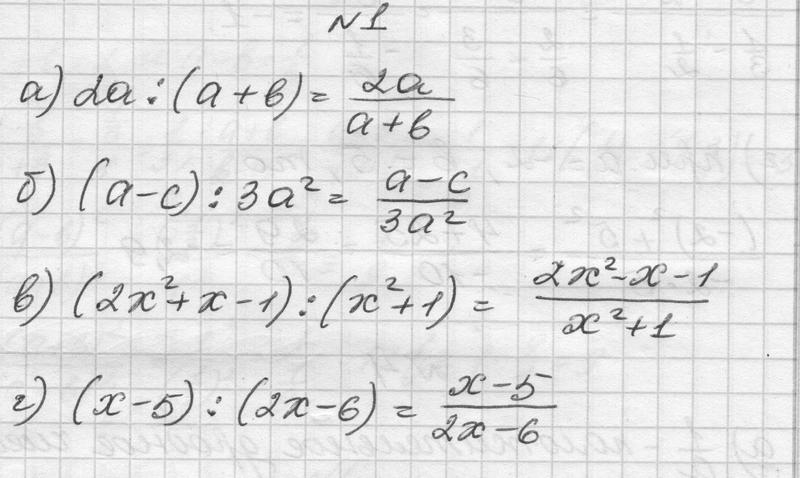 №1
а) 2a : (a + b) = 2a / (a + b)
б) (a - c) : 3a² = (a - c) / 3a²
в) (2x² + x - 1) : (x² + 1) = (2x² - x - 1) / (x² + 1)
г) (x - 5) : (2x - 6) = (x - 5) / (2x - 6)